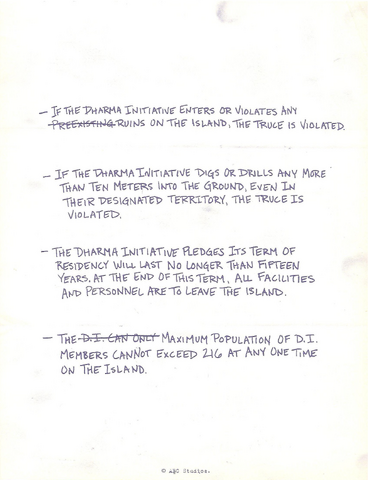 — IF THE DHARMA INITIATIVE ENTERS OR VIOLATES ANY
PREEXISTING RUINS ON THE ISLAND, THE TRUCE IS VIOLATED.
— IF THE DHARMA INITIATIVE DIGS OR DRILLS ANY MORE
THAN TEN METERS INTO THE GROUND, EVEN IN
THEIR DESIGNATED TERRITORY, THE TRUCE IS
VIOLATED.
— THE DHARMA INITIATIVE PLEDGES ITS TERM OF
RESIDENCY WILL LAST NO LONGER THAN FIFTEEN
YEARS. AT THE END OF THIS TERM, ALL FACILITIES
AND PERSONNEL ARE TO LEAVE THE ISLAND.
— THE D.I. CAN ONLY MAXIMUM POPULATION OF D.I.
MEMBERS CANNOT EXCEED 216 AT ANY ONE TIME
ON THE ISLAND.
© ABC Studios.